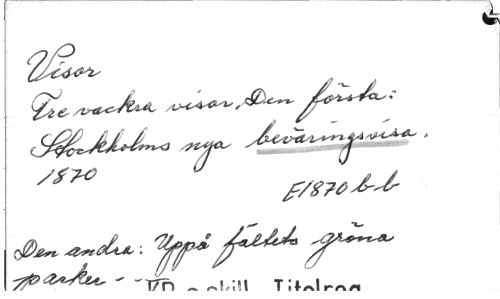 Visor
Tre vackra visor. Den första:
Stockholms nya beväringsvisa.
1870
E1870 b-b
Den andra: Uppå fältets gröna
parker - - 
Titelreg